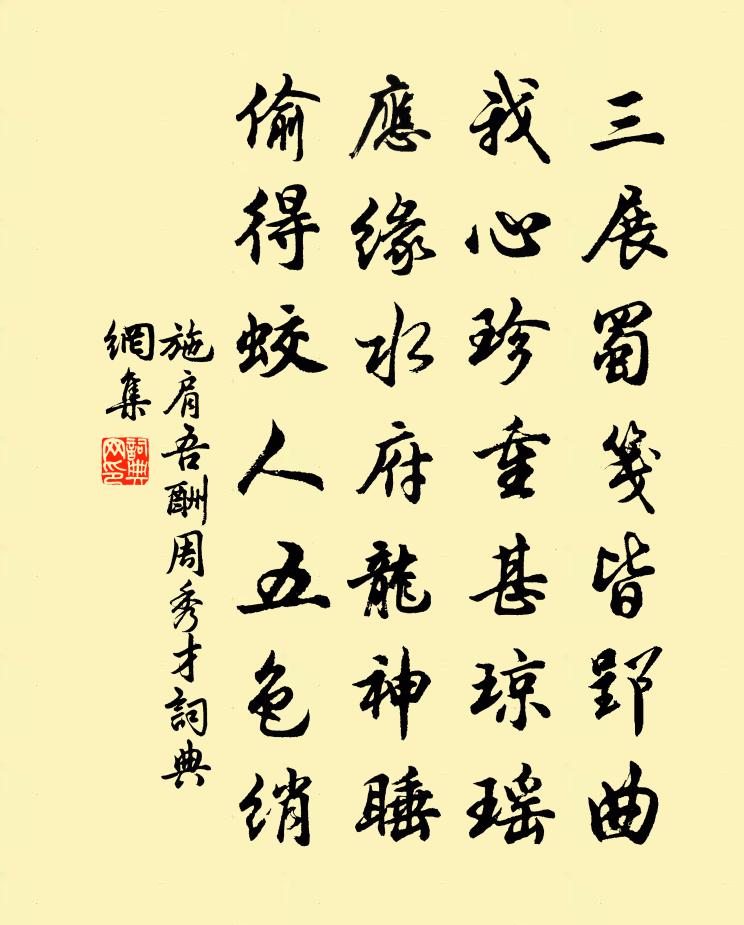 三展蜀箋皆郢曲
我心珍重甚琼瑶
應緣水府龍神睡
偷得蛟人五色綃
施肩吾酬周秀才詞典
網集
詞典
网印